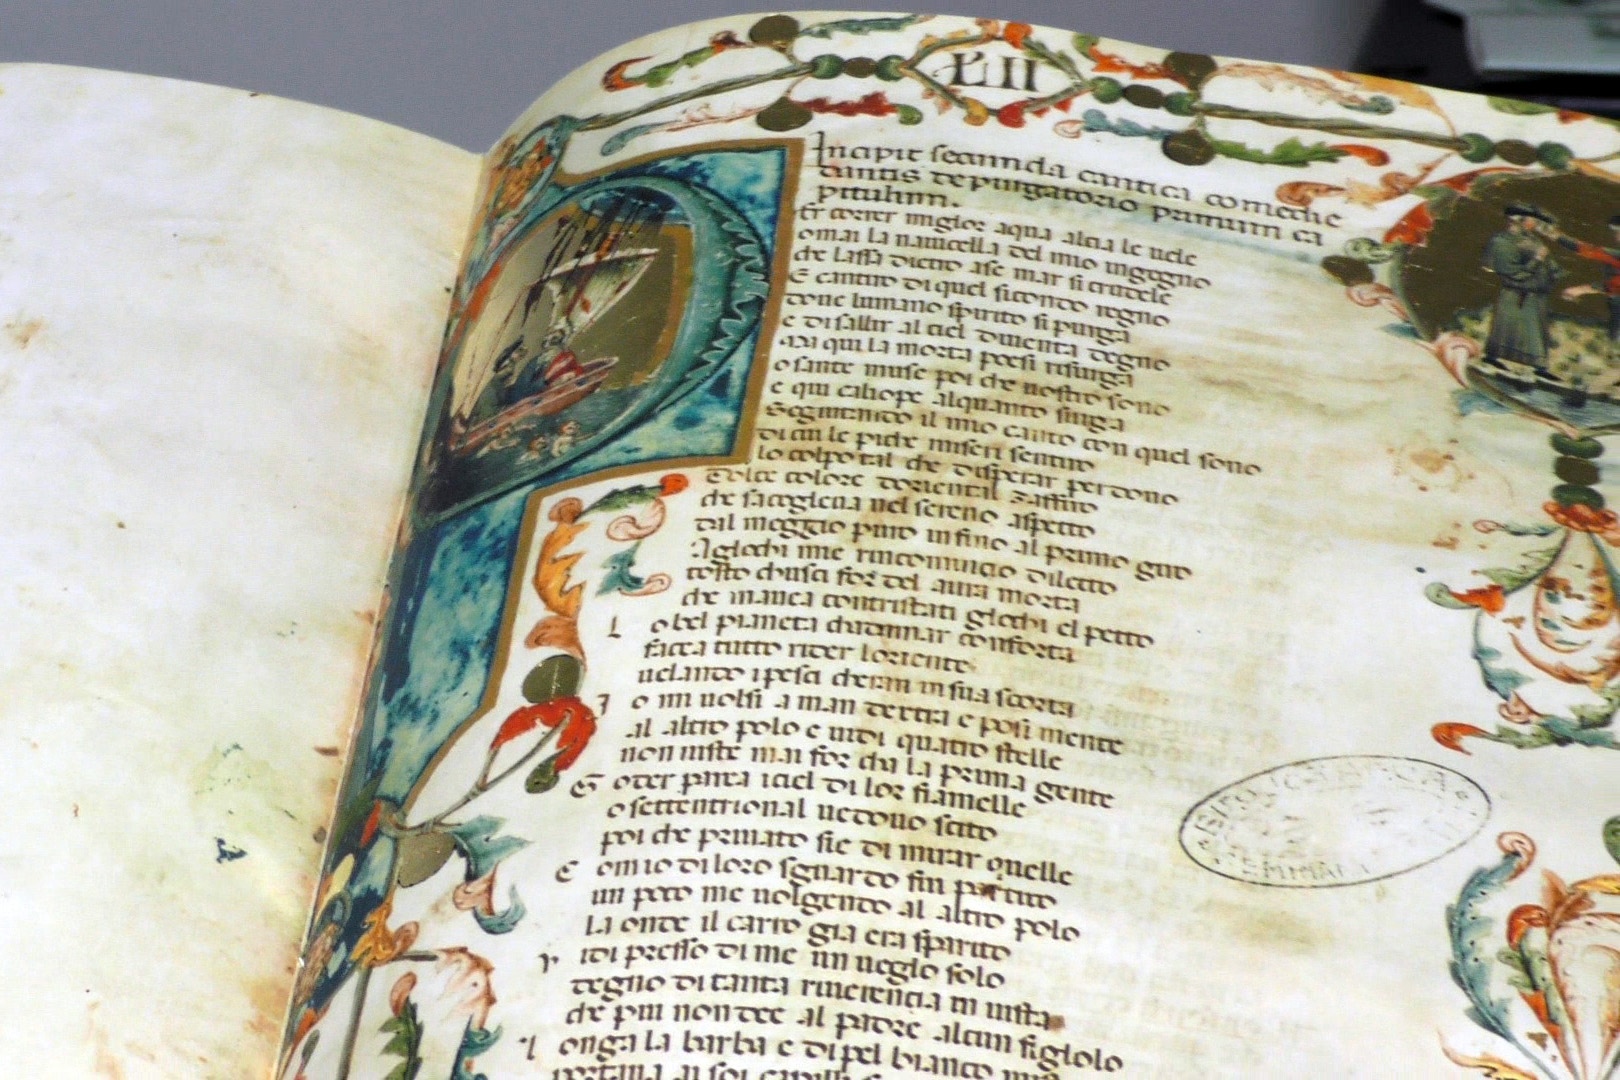 LII
Incipit secunda cantica comedie
dantis de purgatorio primum ca
pitulum.
Er correr miglor aqua alcia le uele
omai la nauicella del mio ingegno
che lassa dietro ase mar si crudele
E cantero di quel sicondo regno
doue lumano spirito si purga
e di sallir al ciel diuenta degno
Ma qui la morta poesi risurga
o sante muse poi che uostro sono
e qui caliope alquanto surga
Seguitando il mio canto con quel sono
di cui le piche miseri sentiro
lo colpo tal che disperar perdono
Dolce colore doriental zaffiro
che sacoglieua nel sereno aspetto
dal meggio puro infino al primo giro
Aglochi mie rincomincio diletto
tosto chusci for del aura morta
che mauea contristati glochi el petto
Lo bel pianeta chadamar conforta
facea tutto rider loriente
uelando i pesci cheran in sua scorta
Io mi uolsi a man dextra e posi mente
al altro polo e uidi quatro stelle
non uiste mai for cha la prima gente
Goder parea iciel di lor fiamelle
o settentrional uedouo scito
poi che priuato sie di mirar quelle
Com io di loro sguardo fui partito
un poco me uolgendo al altro polo
la onde il carro gia era sparito
Vidi presso di me un ueglo solo
degno di tanta riuerencia in uista
che piu non dee al padre alcun figlolo
Longa la barba e di pel bianco mista
portaua ai soi capilli